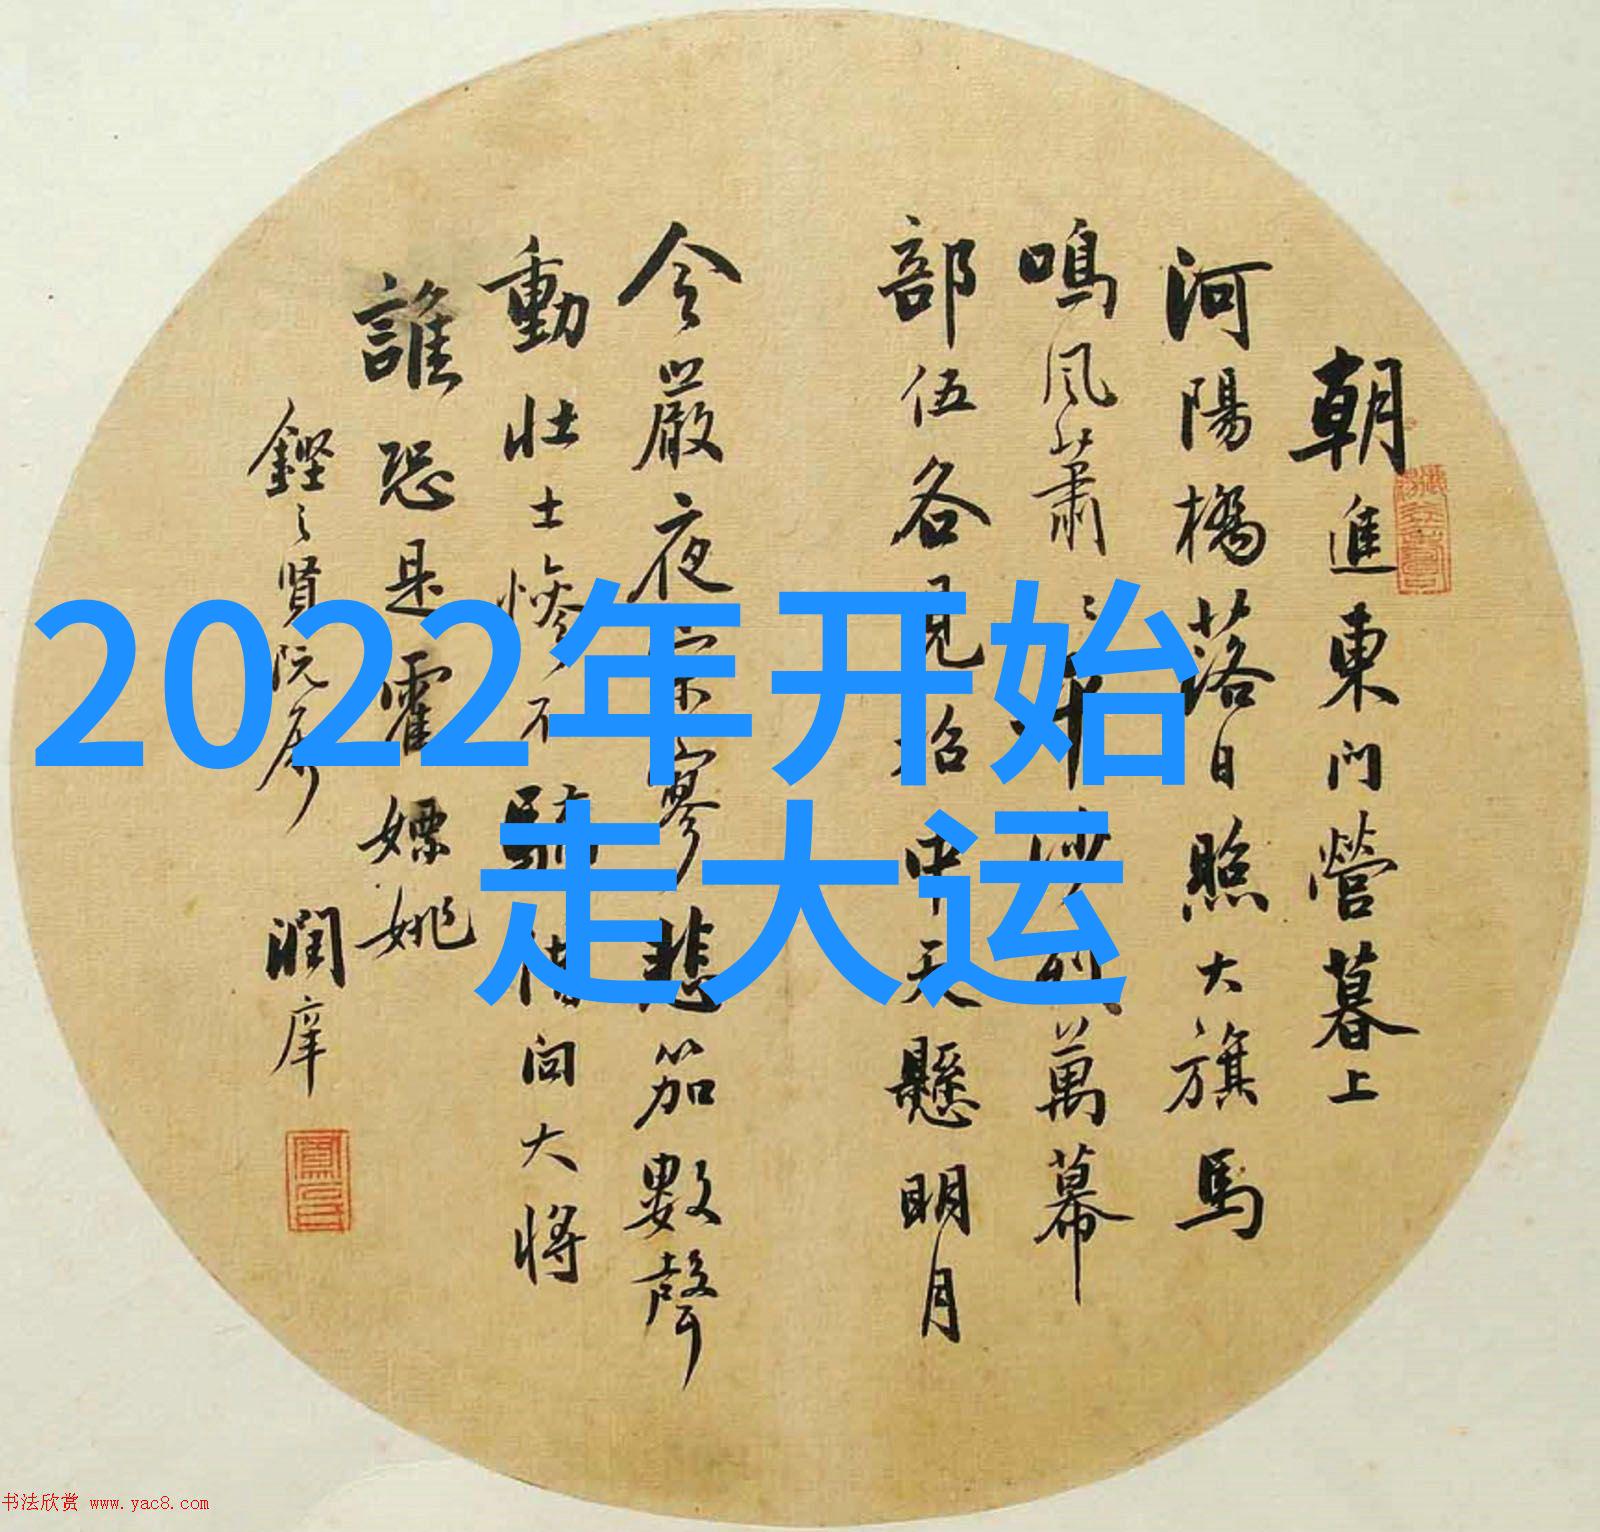 朝進東門營暮上
河陽橋落日照大旗馬
鳴風蕭〻平沙列萬幕
部伍各見招中天懸明月
令嚴夜寂寥悲笳數聲
動壯士慘不驕借問大將
誰恐是霍嫖姚
賢阮屬 潤庠
2022年开始
走大运
书法欣赏 www.yac8.com